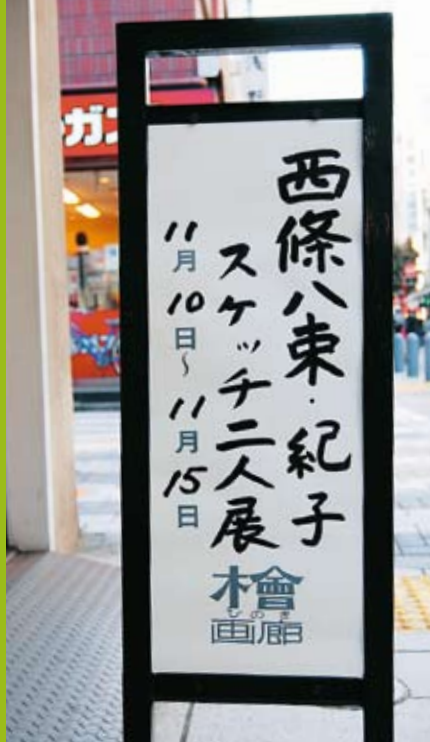 西條八束・紀子
スケッチ二人展
11月10日~11月15日
檜
ひのき
画廊
ガ